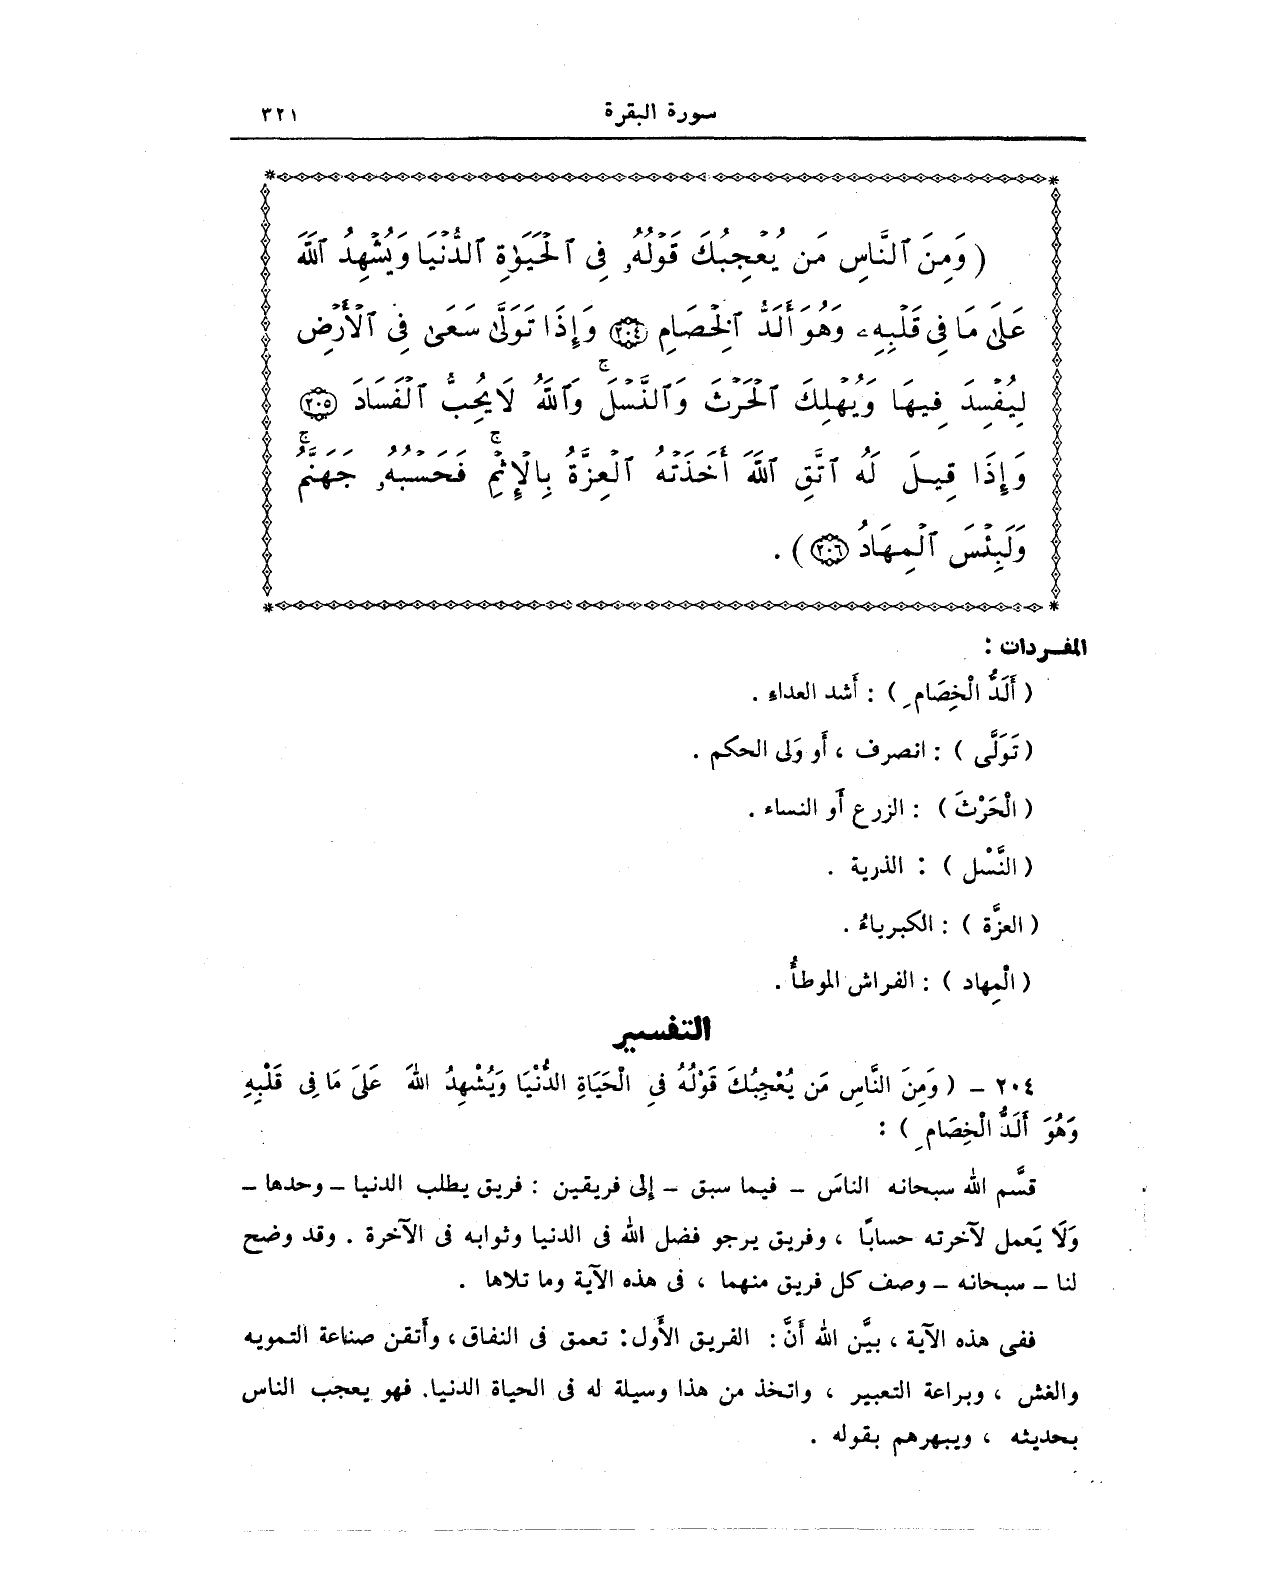 سورة البقرة ٣٢١
( وَمِنَ ٱلنَّاسِ مَن يُعْجِبُكَ قَوْلُهُۥ فِى ٱلْحَيَوٰةِ ٱلدُّنْيَا وَيُشْهِدُ ٱللَّهَ
عَلَىٰ مَا فِى قَلْبِهِۦ وَهُوَ أَلَدُّ ٱلْخِصَامِ ٢٠٤ وَإِذَا تَوَلَّىٰ سَعَىٰ فِى ٱلْأَرْضِ
لِيُفْسِدَ فِيهَا وَيُهْلِكَ ٱلْحَرْثَ وَٱلنَّسْلَ ۚ وَٱللَّهُ لَا يُحِبُّ ٱلْفَسَادَ ٢٠٥
وَإِذَا قِيلَ لَهُ ٱتَّقِ ٱللَّهَ أَخَذَتْهُ ٱلْعِزَّةُ بِٱلْإِثْمِ ۚ فَحَسْبُهُۥ جَهَنَّمُ ۚ
وَلَبِئْسَ ٱلْمِهَادُ ٢٠٦ ) .
المفردات :
( أَلَدُّ الْخِصَامِ ) : أَشد العداءِ .
( تَوَلَّى ) : انصرف ، أَو وَلى الحكم .
( الْحَرْثَ ) : الزرع أَو النساء .
( النَّسْل ) : الذرية .
( العزَّة ) : الكبرياءُ .
( الْمِهاد ) : الفراش الموطأُ .
التفسير
٢٠٤ – ( وَمِنَ النَّاسِ مَن يُعْجِبُكَ قَوْلُهُ فِى الْحَيَاةِ الدُّنْيَا وَيُشْهِدُ اللهَ عَلَىَ مَا فِى قَلْبِهِ
وَهُوَ أَلَدُّ الْخِصَامِ ) :
قسَّم الله سبحانه الناسَ – فيما سبق – إلى فريقين : فريق يطلب الدنيا – وحدها –
وَلَا يَعمل لآخرته حسابًا ، وفريق يرجو فضل الله فى الدنيا وثوابه فى الآخرة . وقد وضح
لنا – سبحانه – وصف كل فريق منهما ، فى هذه الآية وما تلاها .
ففى هذه الآية ، بيَّن الله أَنَّ : الفريق الأَول : تعمق فى النفاق ، وأَتقن صناعة التمويه
والغش ، وبراعة التعبير ، واتخذ من هذا وسيلة له فى الحياة الدنيا. فهو يعجب الناس
بحديثه ، ويبهرهم بقوله .